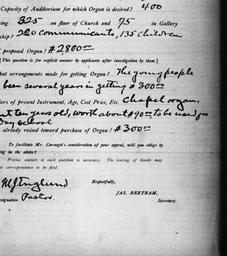 Capacity of Auditorium for which Organ is desired? 400
ing 325 on floor of Church and 75 in Gallery
ship? 220 communicants, 135 children
proposed Organ? $2800.00
[This question is for explicit answer by applicants after investigation by them.]
hat arrangements made for getting Organ? The young people
been several years in getting $300.00
lars of present Instrument, Age, Cost Price, Etc. Chapel organ,
ut ten years old, worth about $90.00, to be used for
day school
already raised toward purchase of Organ? $300.00
To facilitate Mr. Carnegie's consideration of your appeal, will you oblige by
ing in the above?
Precise answer to each question is necessary. The issuing of blanks may
Respectfully,
JAS. BERTRAM,
Secretary.
Englund
signation Pastor.